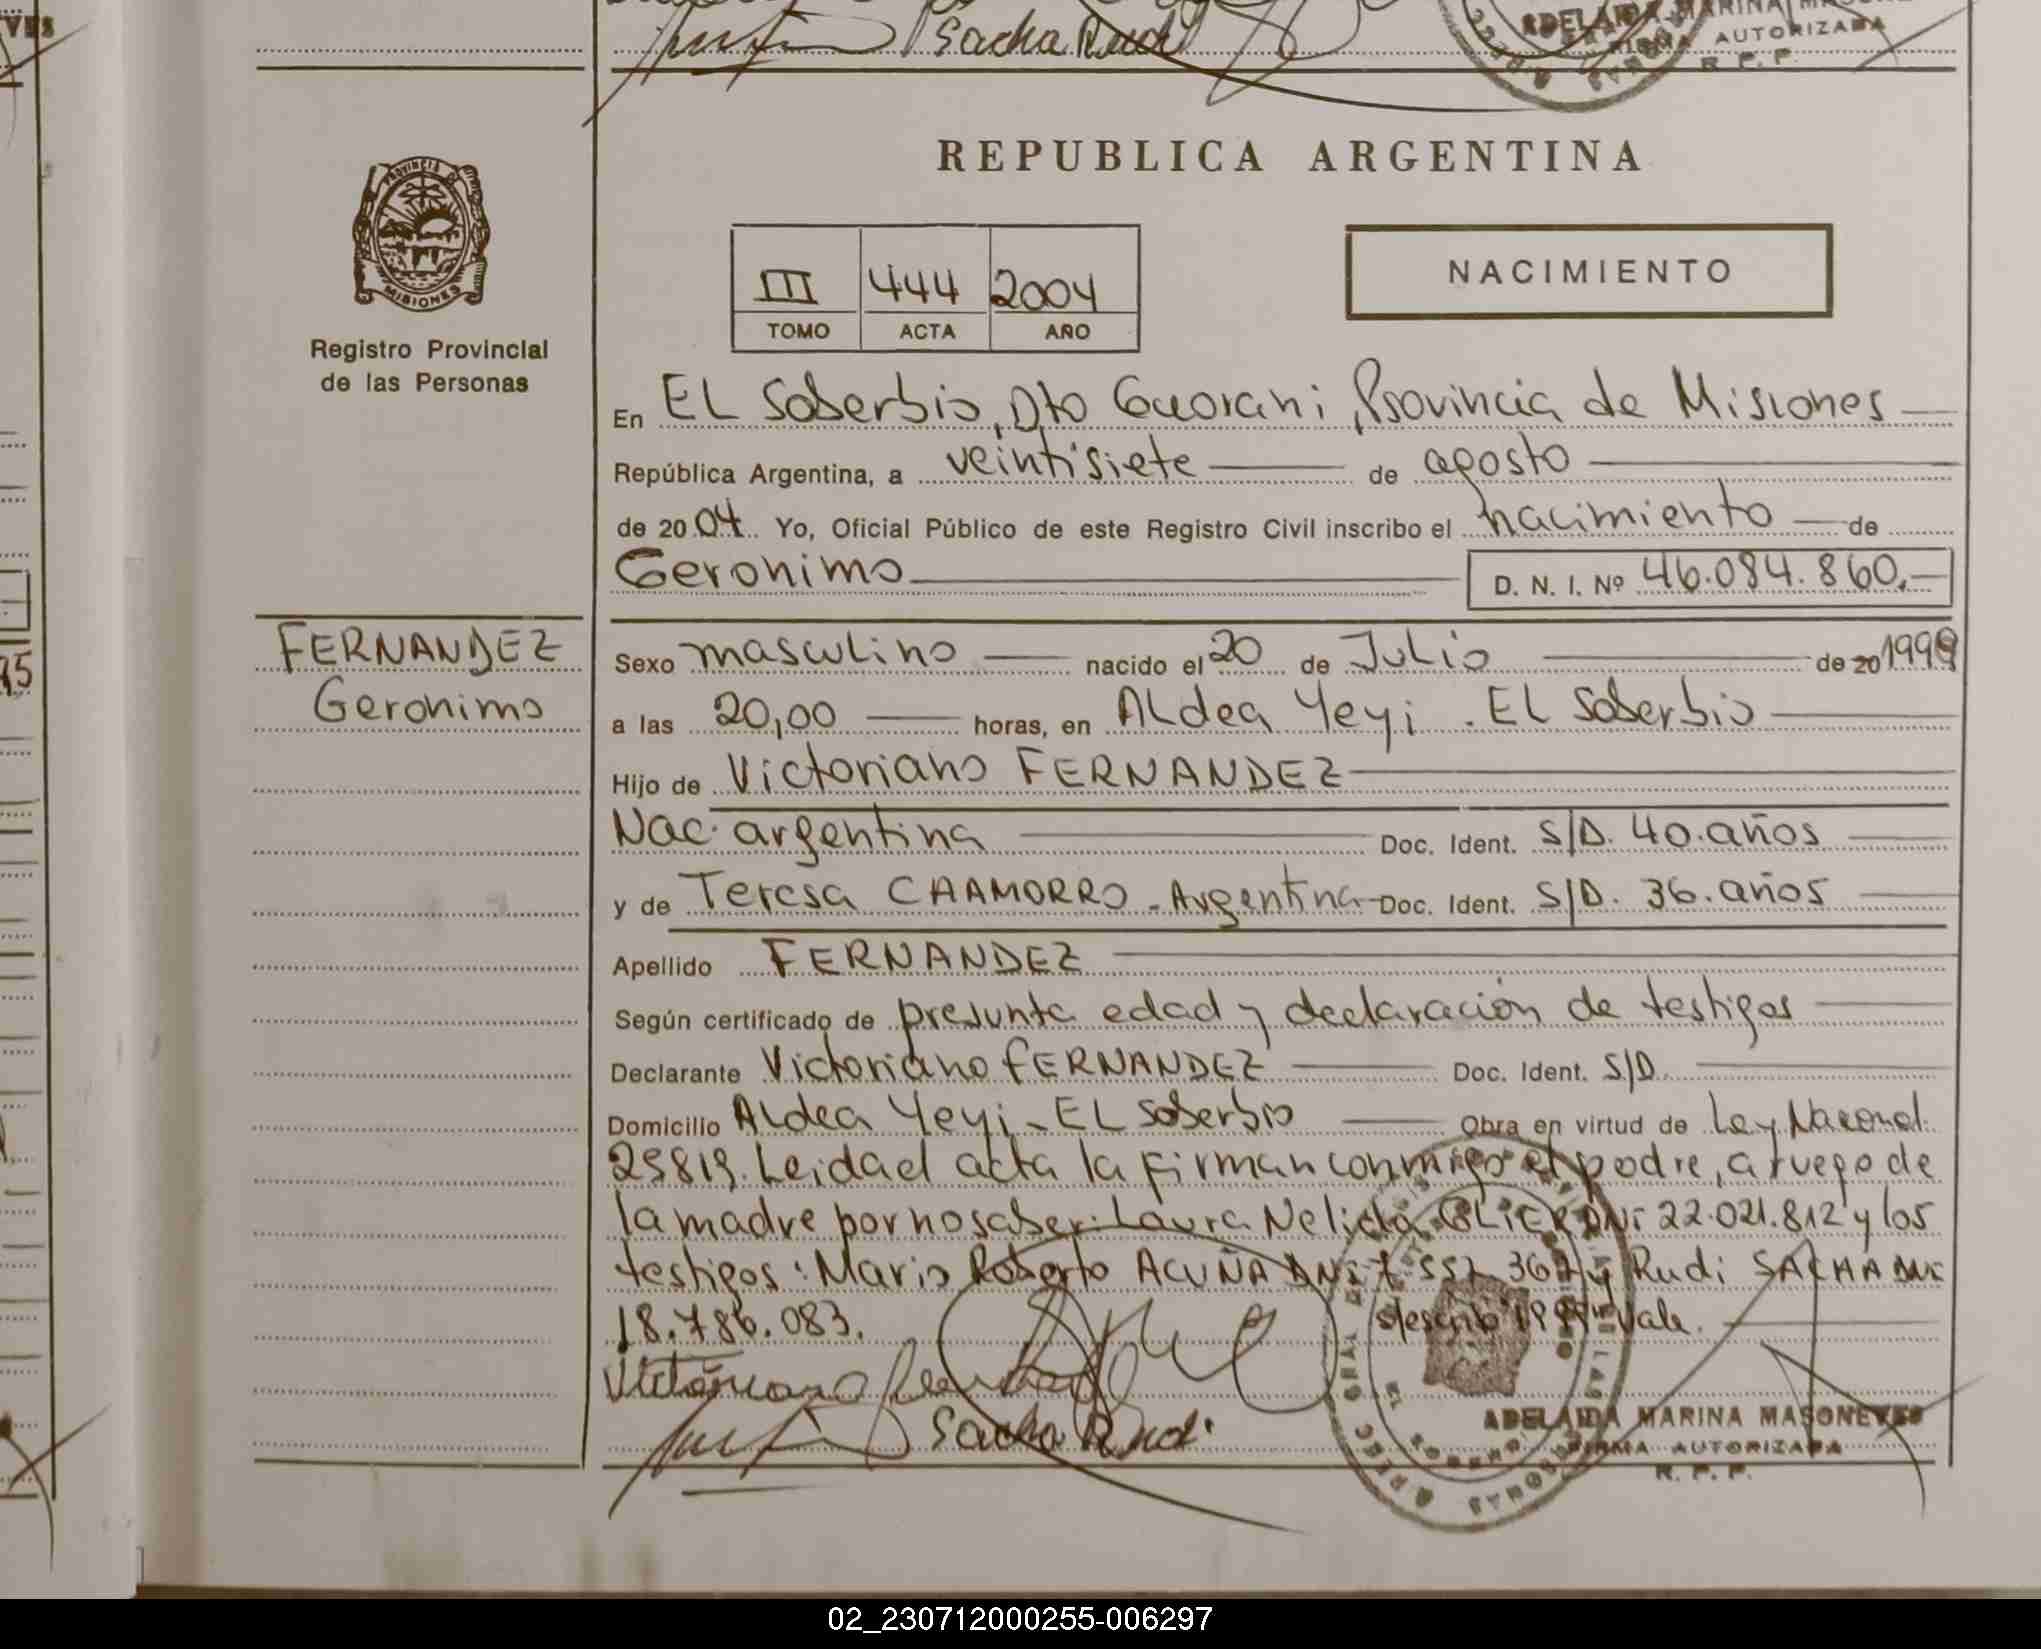 Sacha Rudi
ADELAIDA MARINA
FIRMA AUTORIZADA
R. P. P.
REPUBLICA ARGENTINA
PROVINCIA DE
MISIONES
Registro Provincial
de las Personas
III 444 2004
TOMO ACTA AÑO
NACIMIENTO
En EL Soberbio, Dto Guarani, Provincia de Misiones
República Argentina, a veintisiete de agosto
de 2004. Yo, Oficial Público de este Registro Civil inscribo el nacimiento de
Geronimo D. N. I. Nº 46.084.860.
FERNANDEZ
Geronimo
Sexo masculino nacido el 20 de Julio de 20 1999
a las 20,00 horas, en ALdea Yeyi. EL Soberbio
Hijo de Victoriano FERNANDEZ
Nac. argentina Doc. Ident. S/D. 40.años
y de Teresa CHAMORRO - Argentina Doc. Ident. S/D. 36.años
Apellido FERNANDEZ
Según certificado de presunta edad y declaración de testigos
Declarante Victoriano FERNANDEZ Doc. Ident. S/D.
Domicilio ALdea Yeyi - EL Soberbio Obra en virtud de Ley Nacional
25819. Leida el acta la firman conmigo el padre, a ruego de
la madre por no saber: Laura Nelida DNI 22.021.812 y los
testigos: Mario Roberto ACUÑA DNI y Rudi SACHA DNI
18.786.083. s/escrib "1999" Vale.
Victoriano Fernandez
Sacha Rudi
ADELAIDA MARINA MASONEVES
FIRMA AUTORIZADA
R. P. P.
02_230712000255-006297